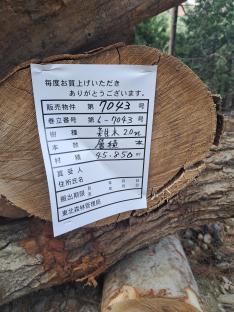 毎度お買上げいただき
ありがとうございます。
販売物件 第 7043 号
巻立番号 第 6-7043 号
樹種 雑木 2.0m
本数 層積 本
材積 45.850 m³
買受人
住所氏名
搬出期限 自 年 月 日 至 年 月 日
東北森林管理局